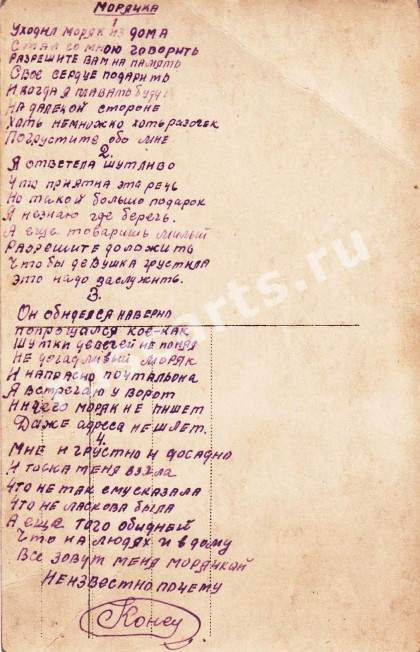 МОРЯЧКА
1
УХОДИЛ МОРЯК ИЗ ДОМА
СТАЛ СО МНОЮ ГОВОРИТЬ
РАЗРЕШИТЕ ВАМ НА ПАМЯТЬ
СВОЕ СЕРДЦЕ ПОДАРИТЬ
И КОГДА Я ПЛАВАТЬ БУДУ
НА ДАЛЕКОЙ СТОРОНЕ
ХОТЬ НЕМНОЖКО ХОТЬ РАЗОЧЕК
ПОГРУСТИТЕ ОБО МНЕ
2.
Я ОТВЕТЕЛА ШУТЛИВО
ЧТО ПРИЯТНА ЭТА РЕЧЬ
НО ТАКОЙ БОЛЬШО ПОДАРОК
Я НЕЗНАЮ ГДЕ БЕРЕЧЬ.
А ЕЩЕ ТОВАРИШЬ МИЛЫЙ
РАЗРЕШИТЕ ДОЛОЖИТЬ
ЧТОБЫ ДЕВУШКА ГРУСТИЛА
ЭТО НАДО ЗАСЛУЖИТЬ.
3.
ОН ОБИДЕЛСЯ НАВЕРНО
ПОПРОЩАЛСЯ КОЕ-КАК
ШУТКИ ДЕВЕЧЕЙ НЕ ПОНЯЛ
НЕ ДОГАДЛИВЫЙ МОРЯК
И НАПРАСНО ПОЧТАЛЬОНА
Я ВСТРЕЧАЮ У ВОРОТ
НИЧЕГО МОРЯК НЕ ПИШЕТ
ДАЖЕ АДРЕСА НЕ ШЛЕТ.
4.
МНЕ И ГРУСТНО И ДОСАДНО
И ТОСКА МЕНЯ ВЗЯЛА
ЧТО НЕ ТАК ЕМУ СКАЗАЛА
ЧТО НЕ ЛАСКОВА БЫЛА
А ЕЩЕ ТОГО ОБИДНЕЙ
ЧТО НА ЛЮДЯХ И В ДОМУ
ВСЕ ЗОВУТ МЕНЯ МОРЯЧКОЙ
НЕИЗВЕСТНО ПОЧЕМУ
Конец